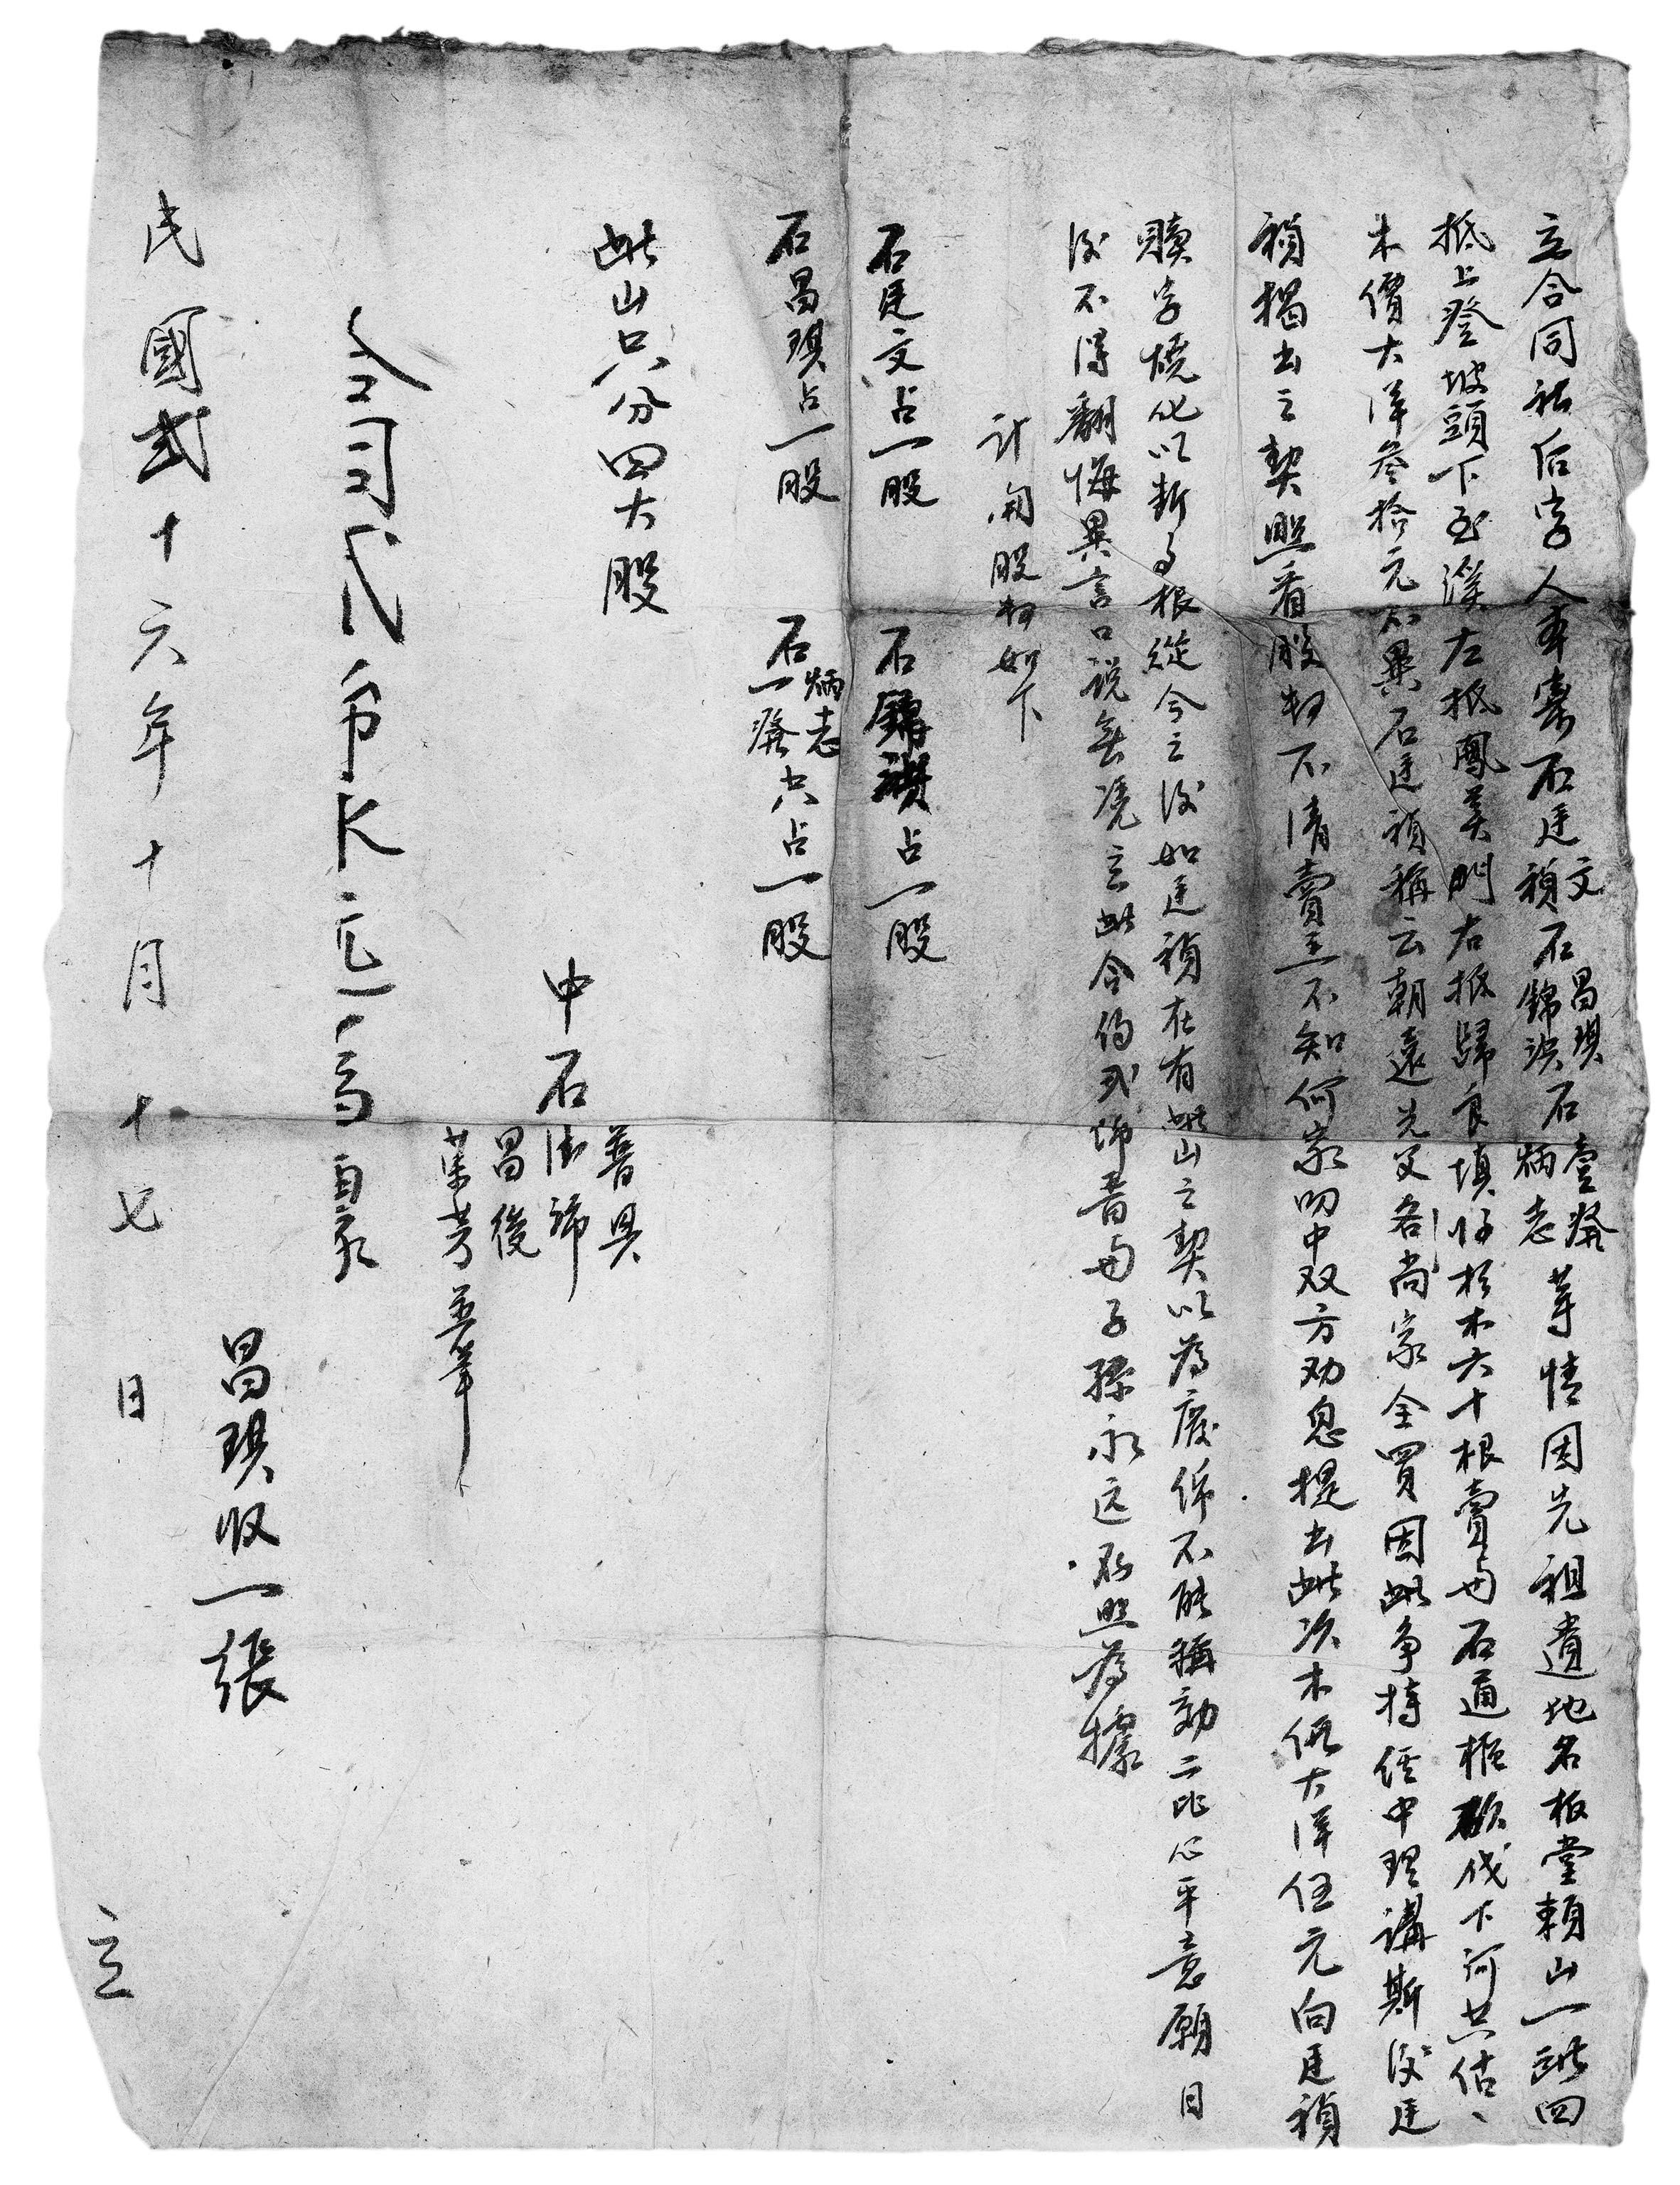 立合同拈后字人本寨石廷文禎石昌琪錦洪石壹發炳志等情因先祖遺地名板堂賴山一塊四
抵上登坡頭下至溪左抵鳳英刪右抵歸良填好杉木六十根賣与石通槐砍伐下河共估
木價大洋叁拾元不異石廷禎稱云朝遠先父名尚家全買因此争持經中理講斯後廷
禎揭出之契照看股數不清賣主不知何家叨中双方劝息提出此次木價大洋伍元向廷禎
贖字燒化以斷根從今之後如廷禎在有此山之契以為廢係不能稱効二比心平意願日
後不得翻悔異言口説無憑立此合同弍帋番与子孫永远存照為據
計開股數如下
石廷文占一股 石錦洪占一股
石昌琪占一股 石炳志一發共占一股
此山只分四大股
中石普具 昌後 葉芳並筆
昌琪收一張
民國弍十六年十月十七日 立